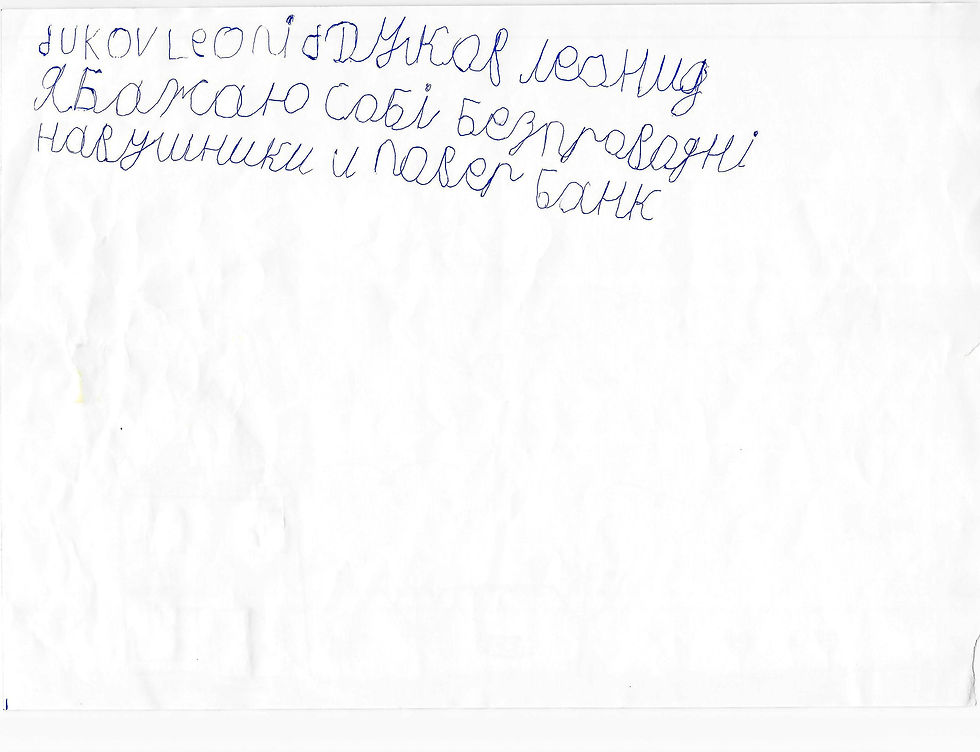 dUKOV Leonid Дуков Леонид
Я Бажаю собі безпроводні
навушники и павер банк